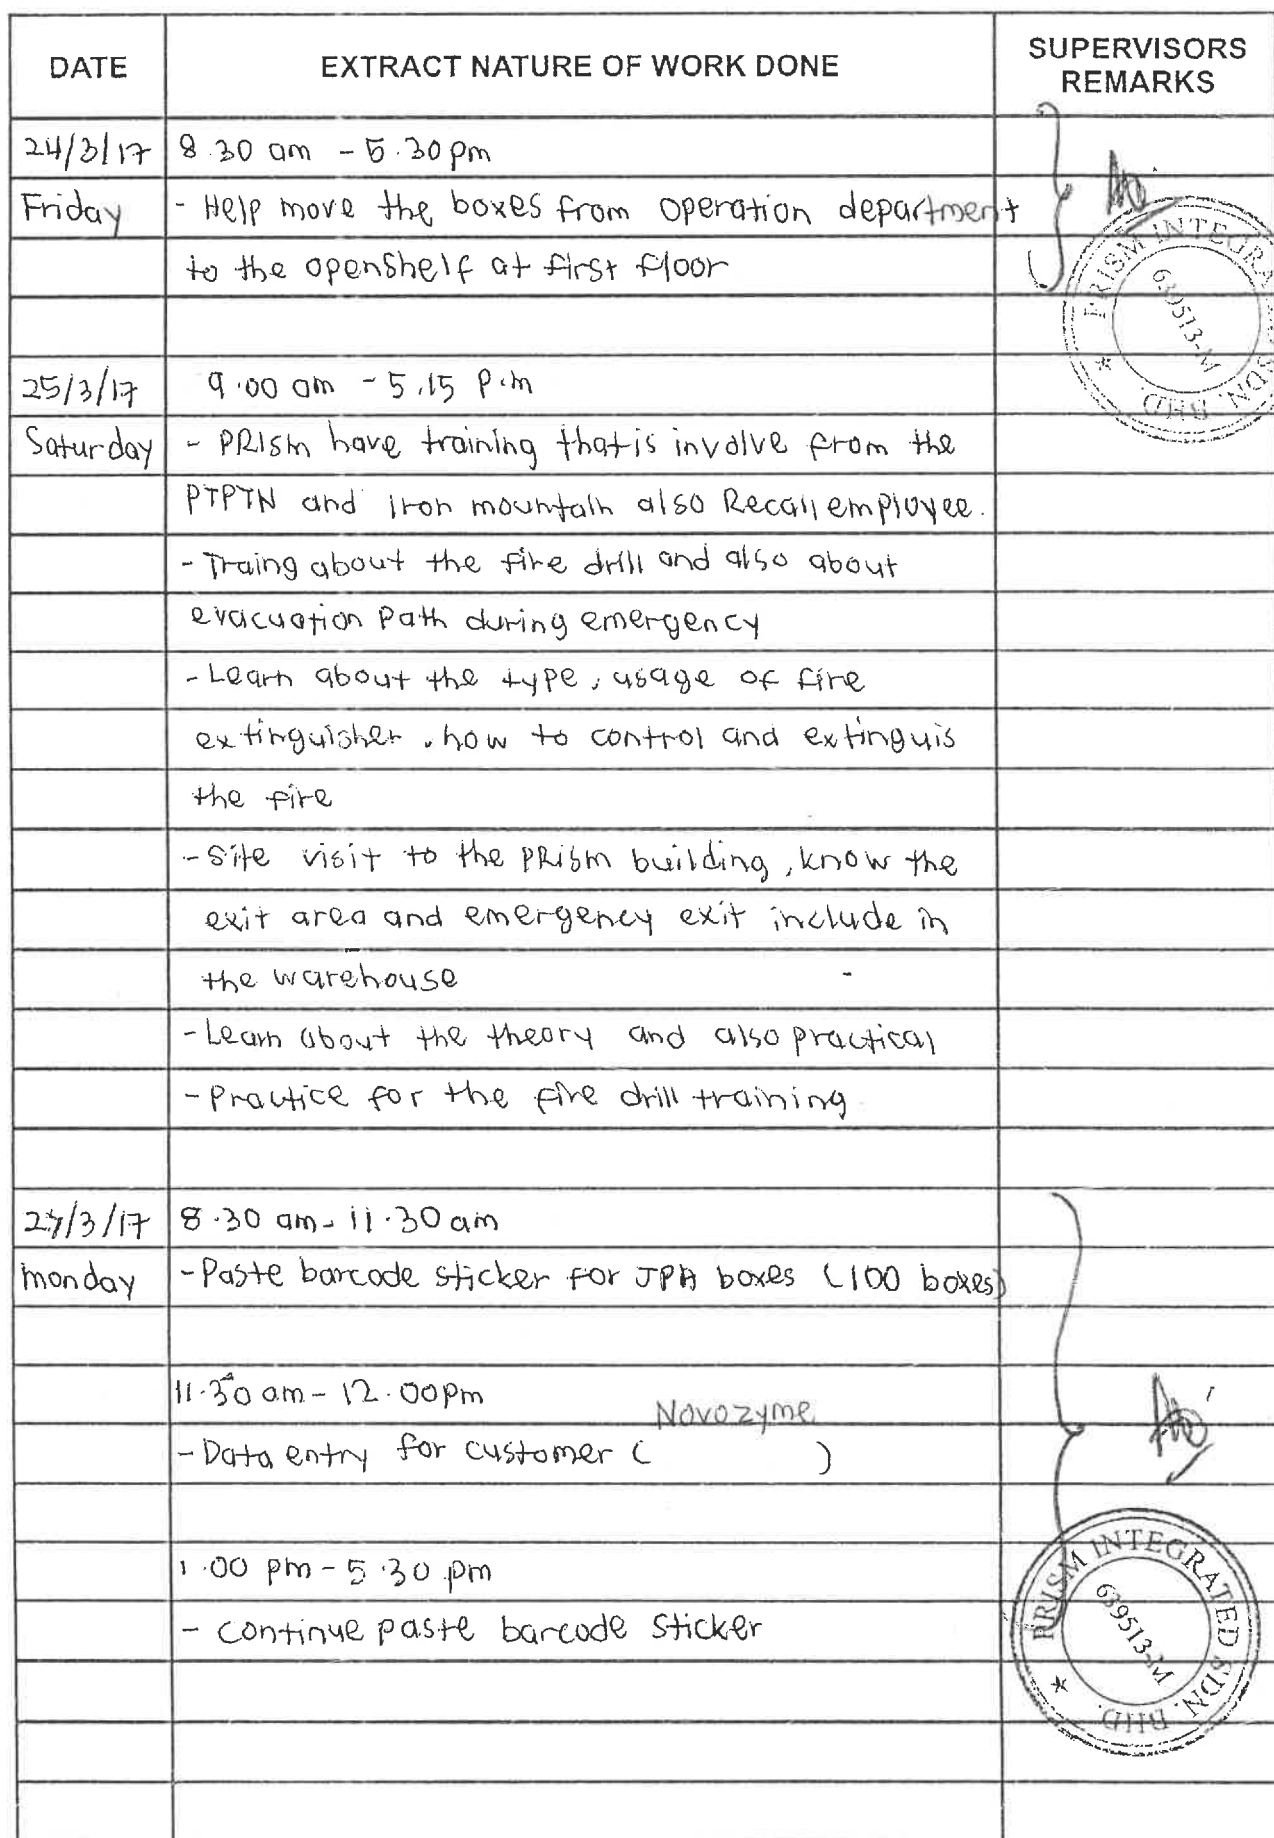 DATE EXTRACT NATURE OF WORK DONE SUPERVISORS REMARKS
24/3/17 8.30 am - 5.30 pm
Friday - Help move the boxes from operation department
to the openshelf at first floor
PRISM INTEGRA SDN. BHD. ★
639513-M
25/3/17 9.00 am - 5.15 p.m
Saturday - PRISM have training that is involve from the
PTPTN and iron mountain also Recall employee.
- Traing about the fire drill and also about
evacuation path during emergency
- Learn about the type, usage of fire
extinguisher, how to control and extinguis
the fire
- Site visit to the PRISM building, know the
exit area and emergency exit include in
the warehouse
- Learn about the theory and also practical
- Practice for the fire drill training
27/3/17 8.30 am - 11.30 am
monday - Paste barcode sticker for JPA boxes (100 boxes)
11.30 am - 12.00pm
- Data entry for customer ( Novozyme )
1.00 pm - 5.30 pm
- continue paste barcode sticker
PRISM INTEGRATED SDN. BHD. ★
639513-M